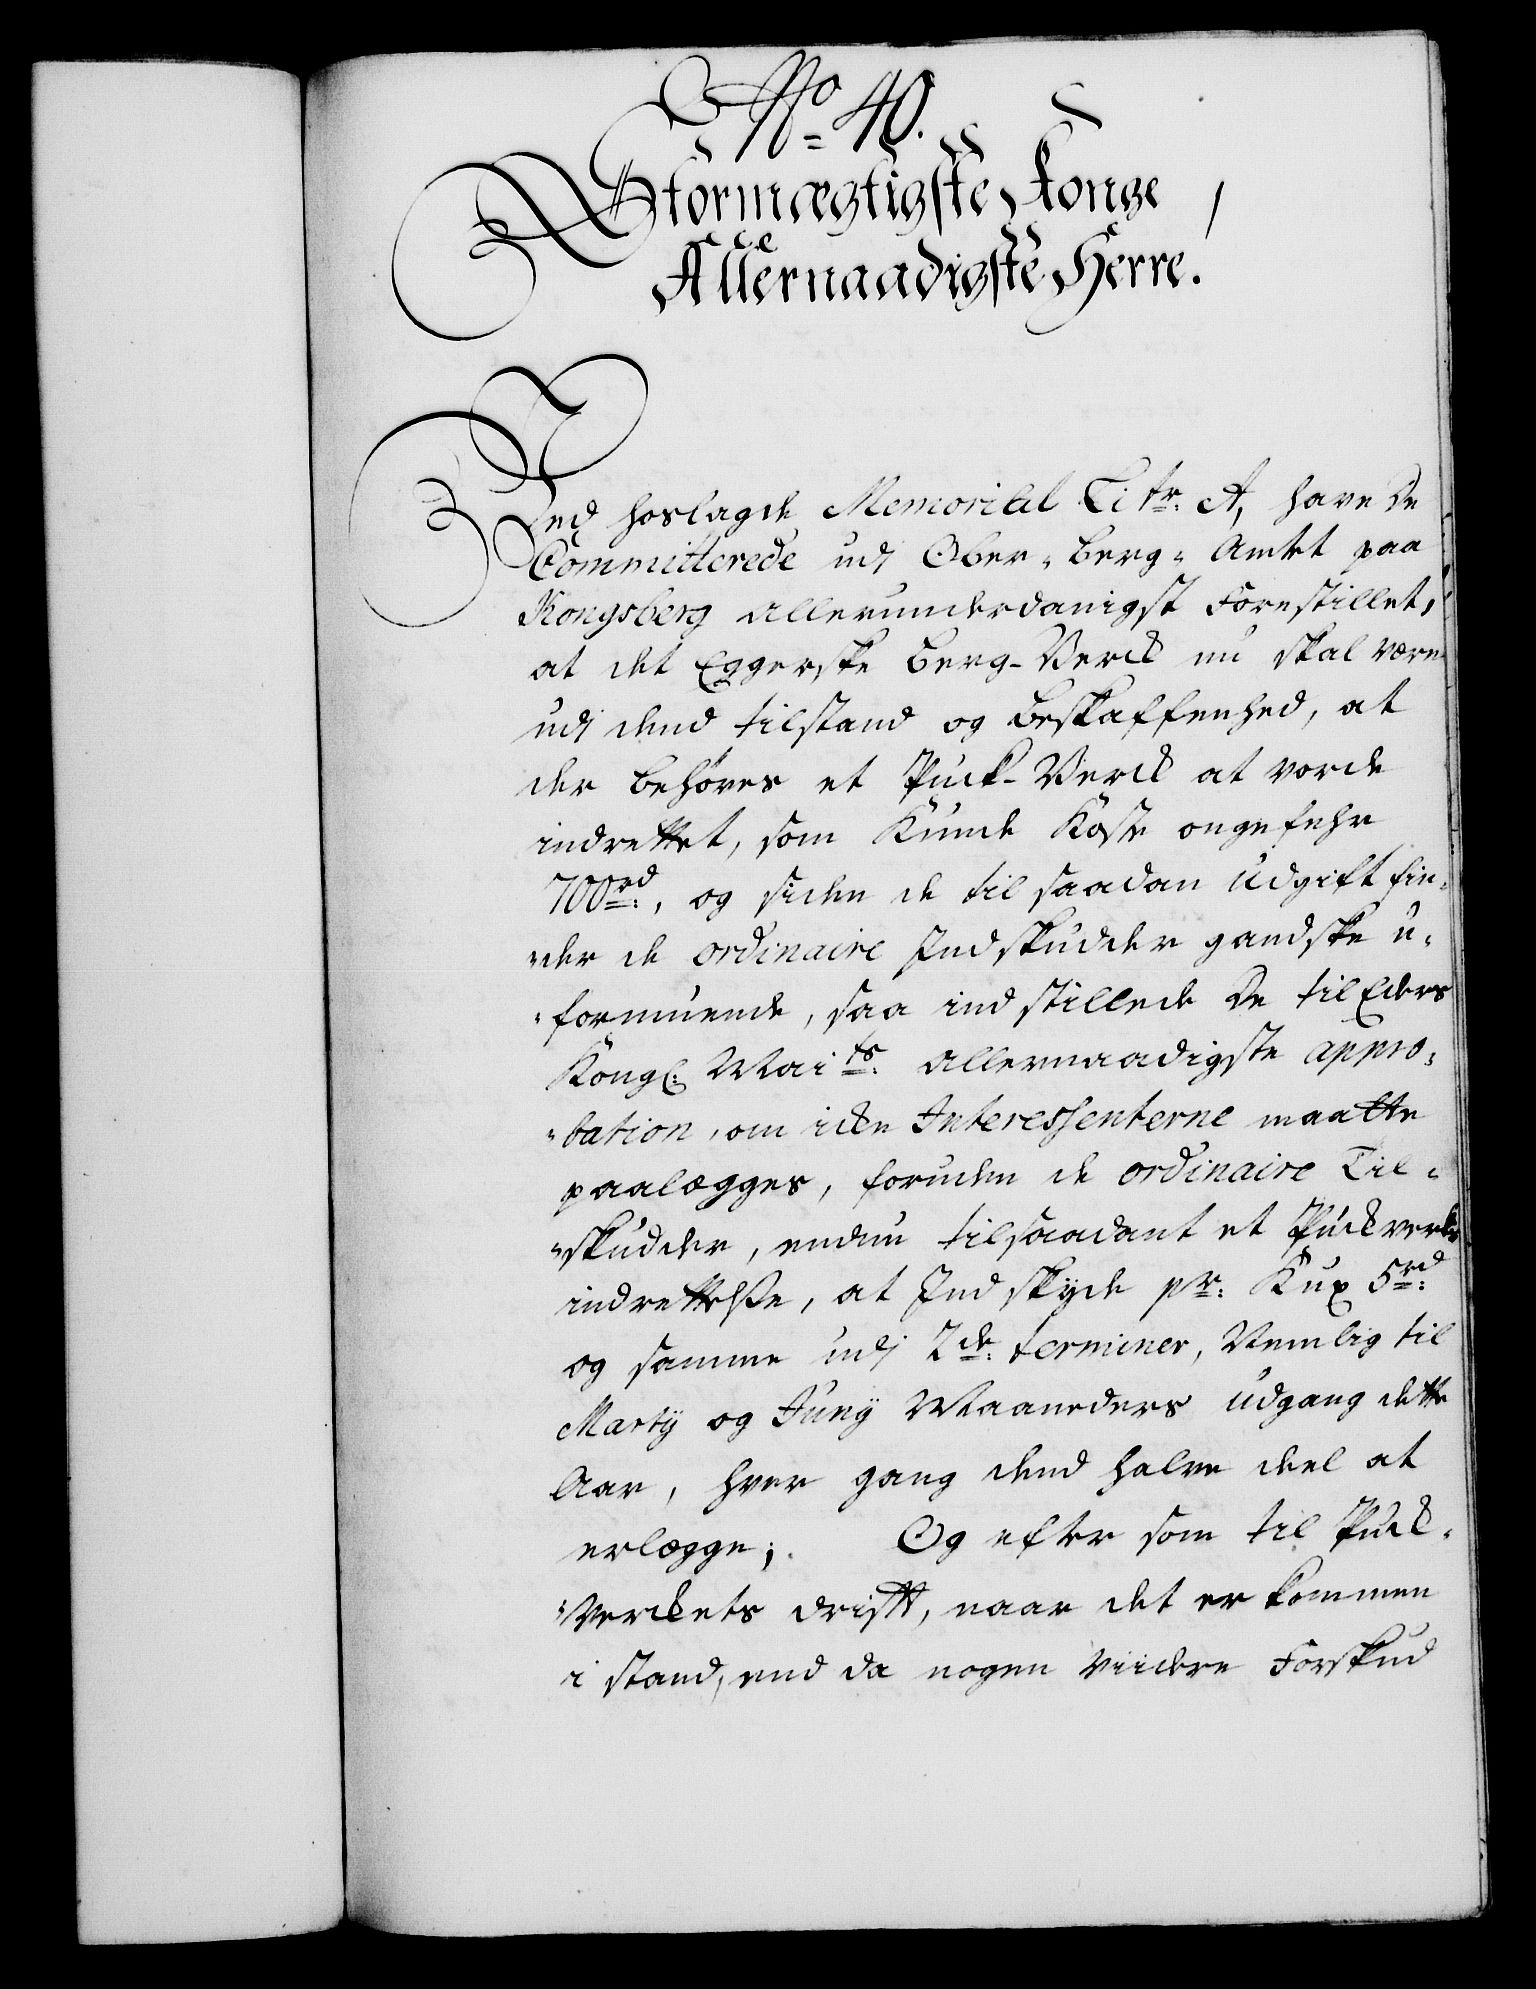 No 40.
Stormægtigste Konge
Allernaadigste Herre.
Ved hoslagde Memorial Litr. A, have De
Committerede udj Ober-Berg-Amtet paa
Kongsberg allerunderdanigst Forestillet,
at det Eggerske Berg-Verck nu skal være
udj dend tilstand og Beskaffenhed, at
der behøves et Puck-Verck at vorde
indrettet, som Kunde Koste ongefehr
700rd, og siden de til saadan Udgift fin-
der de ordinaire Indskudder gandske u-
formuende, saa indstillede De til Eders
Kongl: Maits allernaadigste appro-
bation, om iden Interessenterne maatte
paalægges, foruden de ordinaire Til-
skudder, endnu til saadant et Puckverks
indrettelse, at Indskyde pr. Kux 5rd
og samme udj 2de terminer, Nemlig til
Martij og Junij Maaneders udgang dette
Aar, hver gang dend halve deel at
erlægge; Og eftersom til Puck-
Verckets drifft, naar det er kommen
i stand, end da nogen viidere Forskud